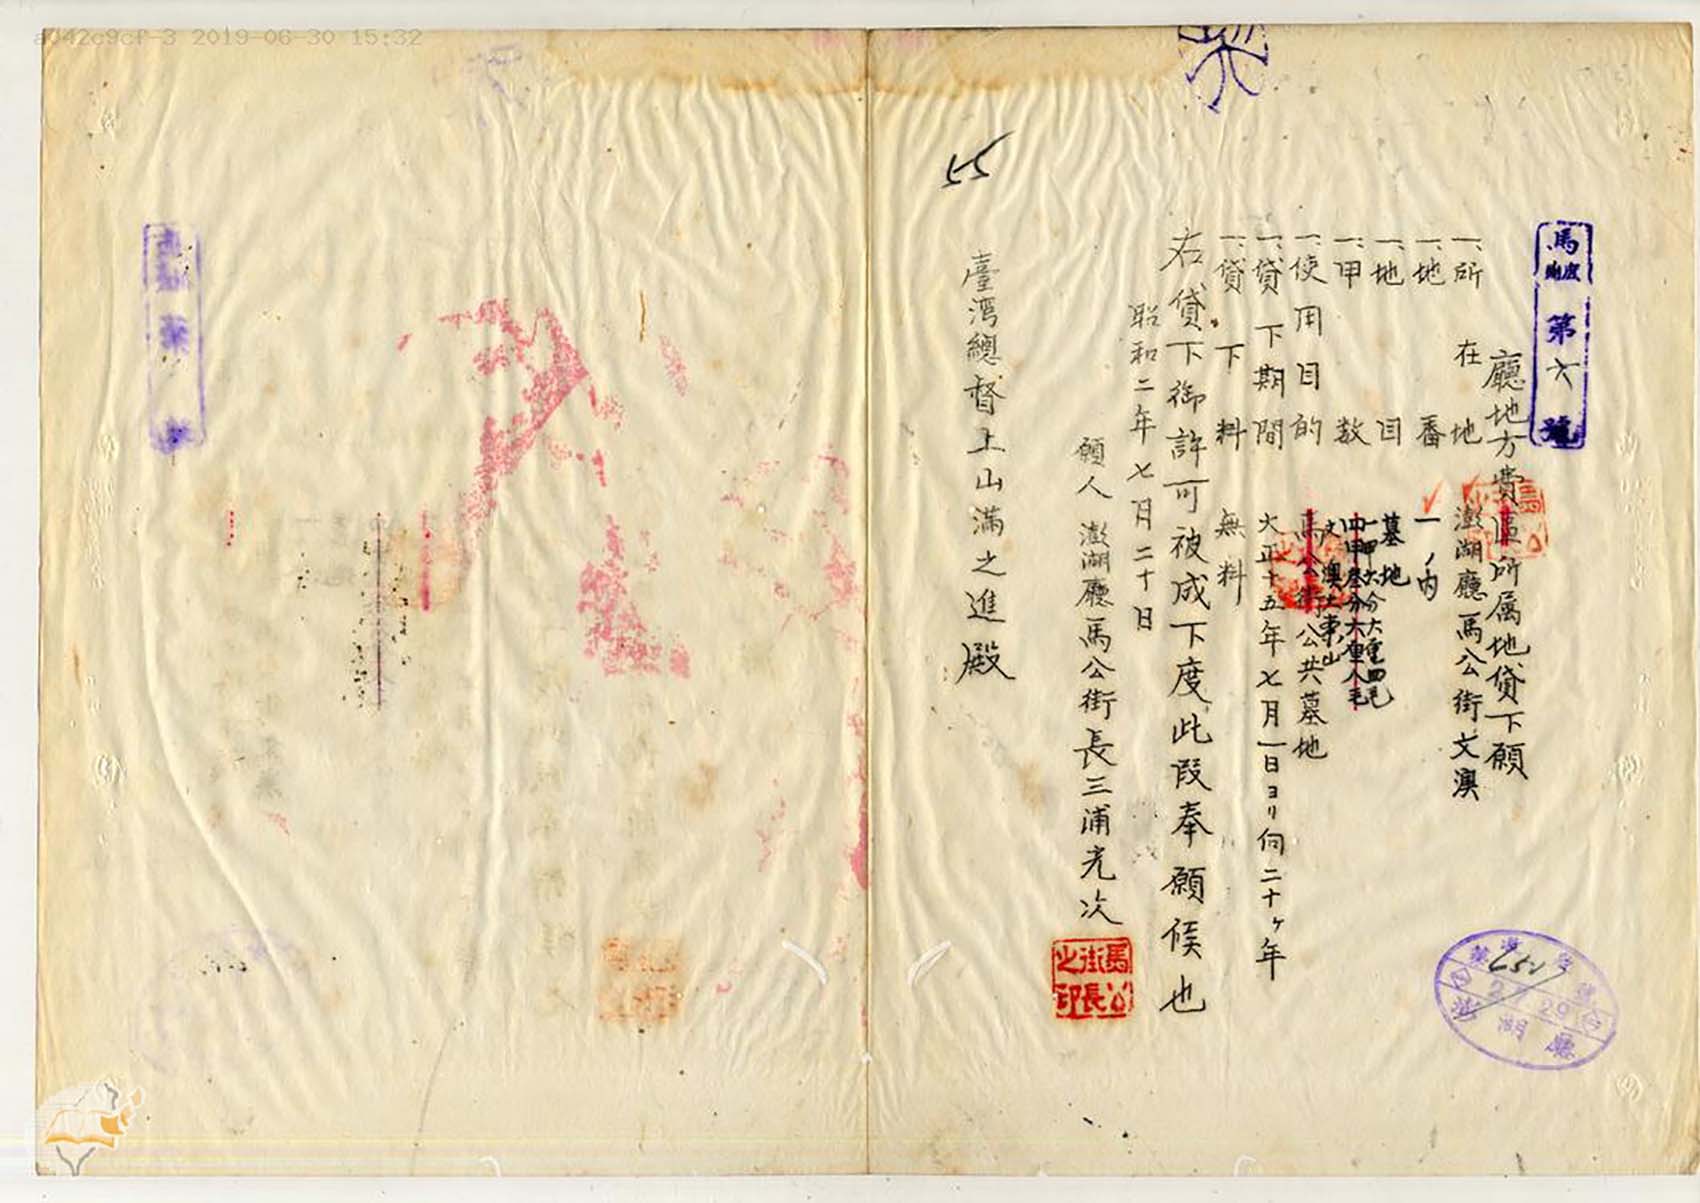 a042c9cf-3 2019-06-30 15:32
55
第六號
廳地方費區所属地貸下願
一、所在地 澎湖廳馬公街文澳
一、地番 一ノ内
一、地目 墓地
一、甲数 一甲六分六厘四毛
一、使用目的 馬公街公共墓地
一、貸下期間 大正十五年七月一日ヨリ向二十ヶ年
一、貸下料 無料
右貸下御許可被成下度此段奉願候也
昭和二年七月二十日
願人 澎湖廳馬公街長三浦光次
馬公街長之印
臺湾總督上山滿之進殿
澎湖廳
2.7.29